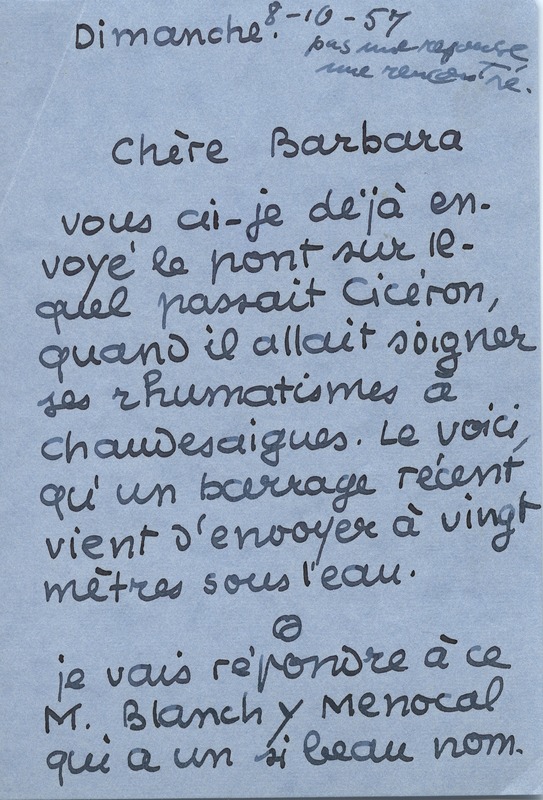 Dimanche. 8-10-57
pas une réponse
une rencontre.
Chère Barbara
vous ai-je déjà en-
voyé le pont sur le-
quel passait Cicéron,
quand il allait soigner
ses rhumatismes à
chaudesaigues. Le voici,
qu'un barrage récent
vient d'envoyer à vingt
mètres sous l'eau.
je vais répondre à ce
M. Blanch y Menocal
qui a un si beau nom.